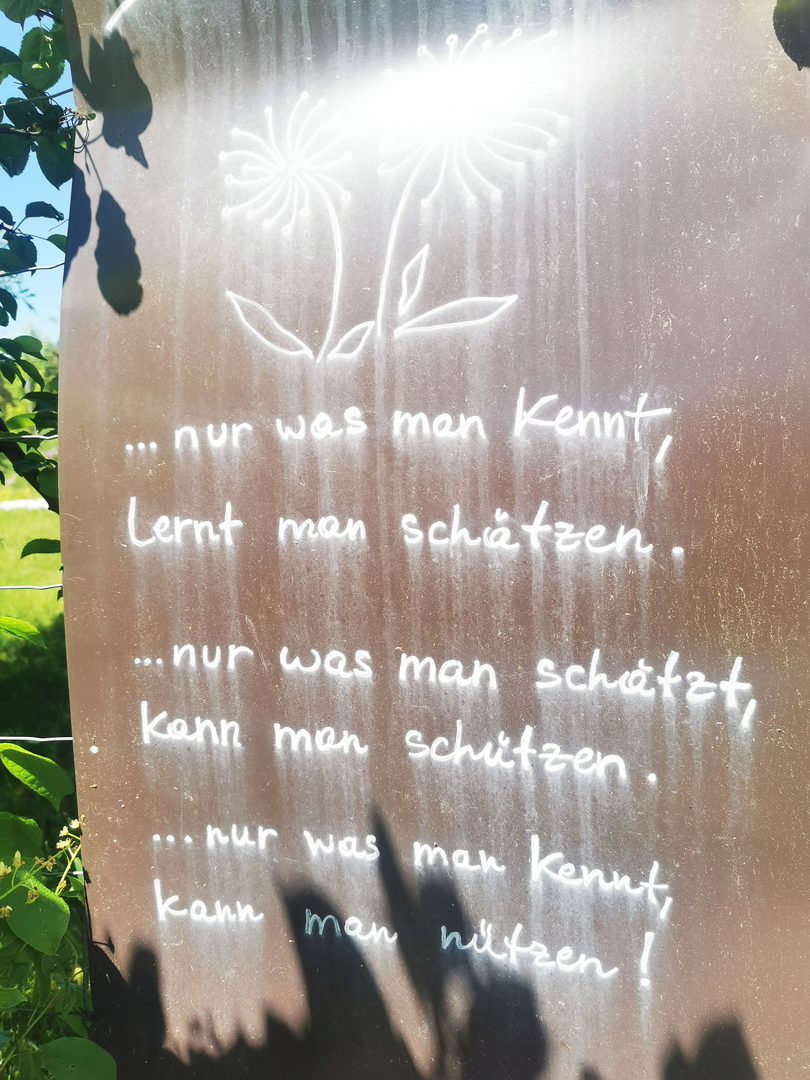 ... nur was man kennt,
lernt man schätzen.
... nur was man schätzt,
kann man schützen.
... nur was man kennt,
kann man nützen!